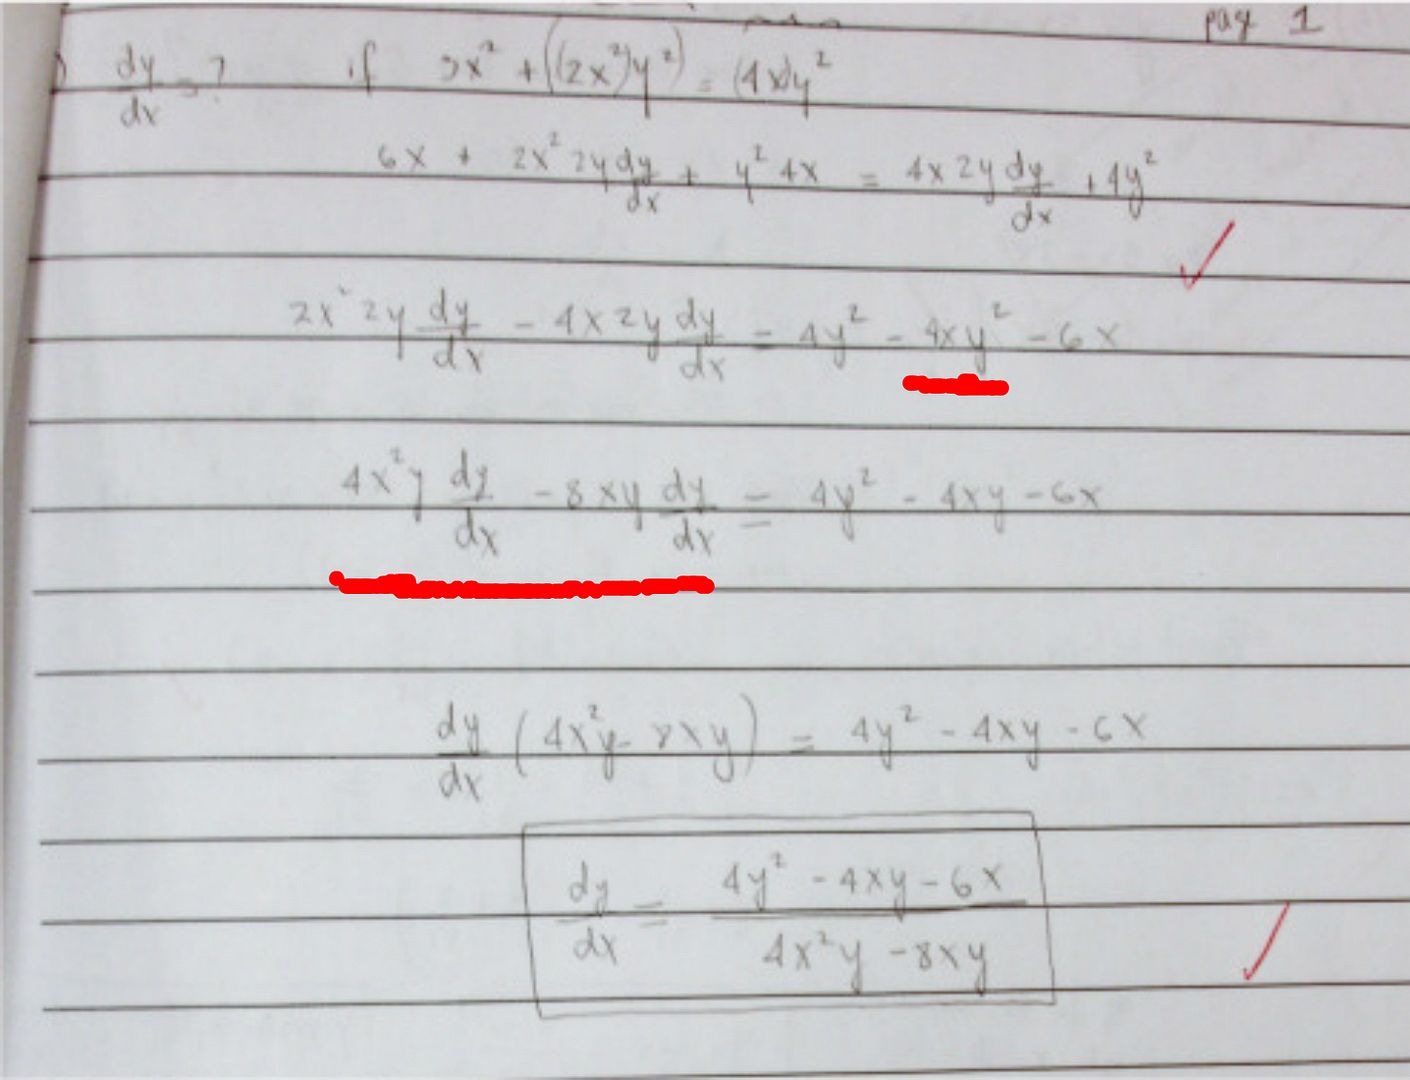 page 1
dy/dx = ? if 3x² + ((2x²)y²) = (4x)y²
6x + 2x² 2y dy/dx + y² 4x = 4x 2y dy/dx + 4y²
2x² 2y dy/dx - 4x 2y dy/dx = 4y² - 4xy² - 6x
4x²y dy/dx - 8xy dy/dx = 4y² - 4xy - 6x
dy/dx (4x²y - 8xy) = 4y² - 4xy - 6x
dy/dx = (4y² - 4xy - 6x)/(4x²y - 8xy)